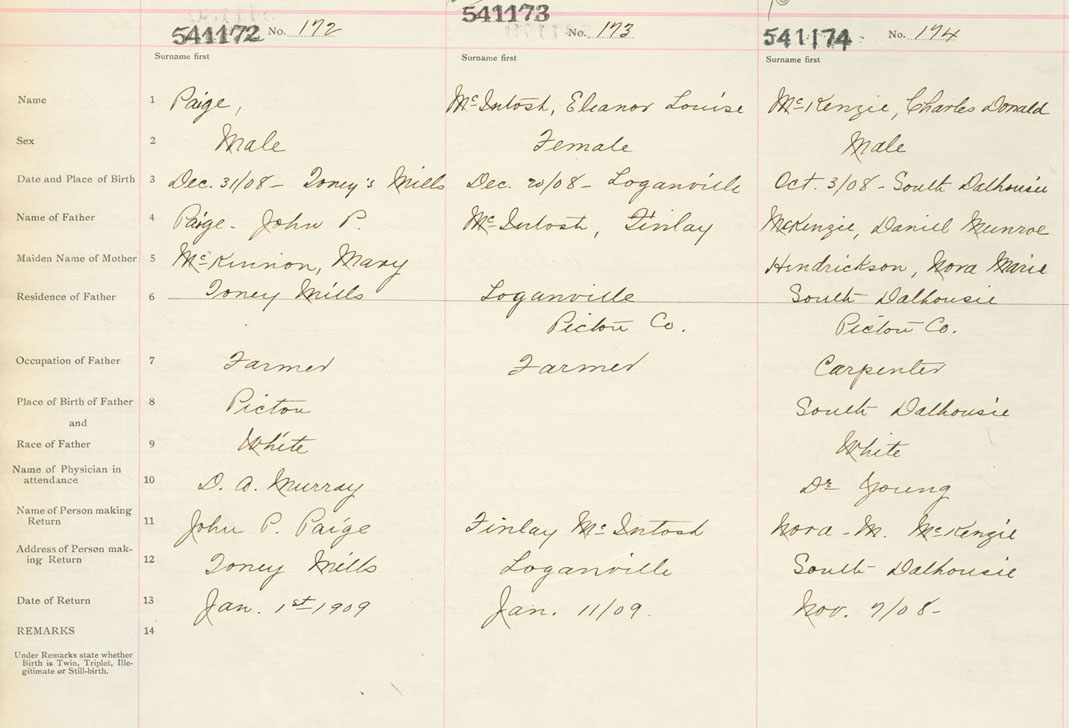 541172 No. 172 541173 No. 173 541174 No. 174
Surname first Surname first Surname first
Name 1 Paige, McIntosh, Eleanor Louise McKenzie, Charles Donald
Sex 2 Male Female Male
Date and Place of Birth 3 Dec. 31/08 - Toney's Mills Dec. 20/08 - Loganville Oct. 3/08 - South Dalhousie
Name of Father 4 Paige - John P. McIntosh, Finlay McKenzie, Daniel Munroe
Maiden Name of Mother 5 McKinnon, Mary Hendrickson, Nora Marie
Residence of Father 6 Toney Mills Loganville South Dalhousie
Pictou Co. Pictou Co.
Occupation of Father 7 Farmer Farmer Carpenter
Place of Birth of Father 8 Pictou South Dalhousie
and
Race of Father 9 White White
Name of Physician in
attendance 10 D. A. Murray Dr Young
Name of Person making
Return 11 John P. Paige Finlay McIntosh Nora - M. McKenzie
Address of Person mak-
ing Return 12 Toney Mills Loganville South Dalhousie
Date of Return 13 Jan. 1st 1909 Jan. 11/09. Nov. 7/08 -
REMARKS 14
Under Remarks state whether
Birth is Twin, Triplet, Ille-
gitimate or Still-birth.